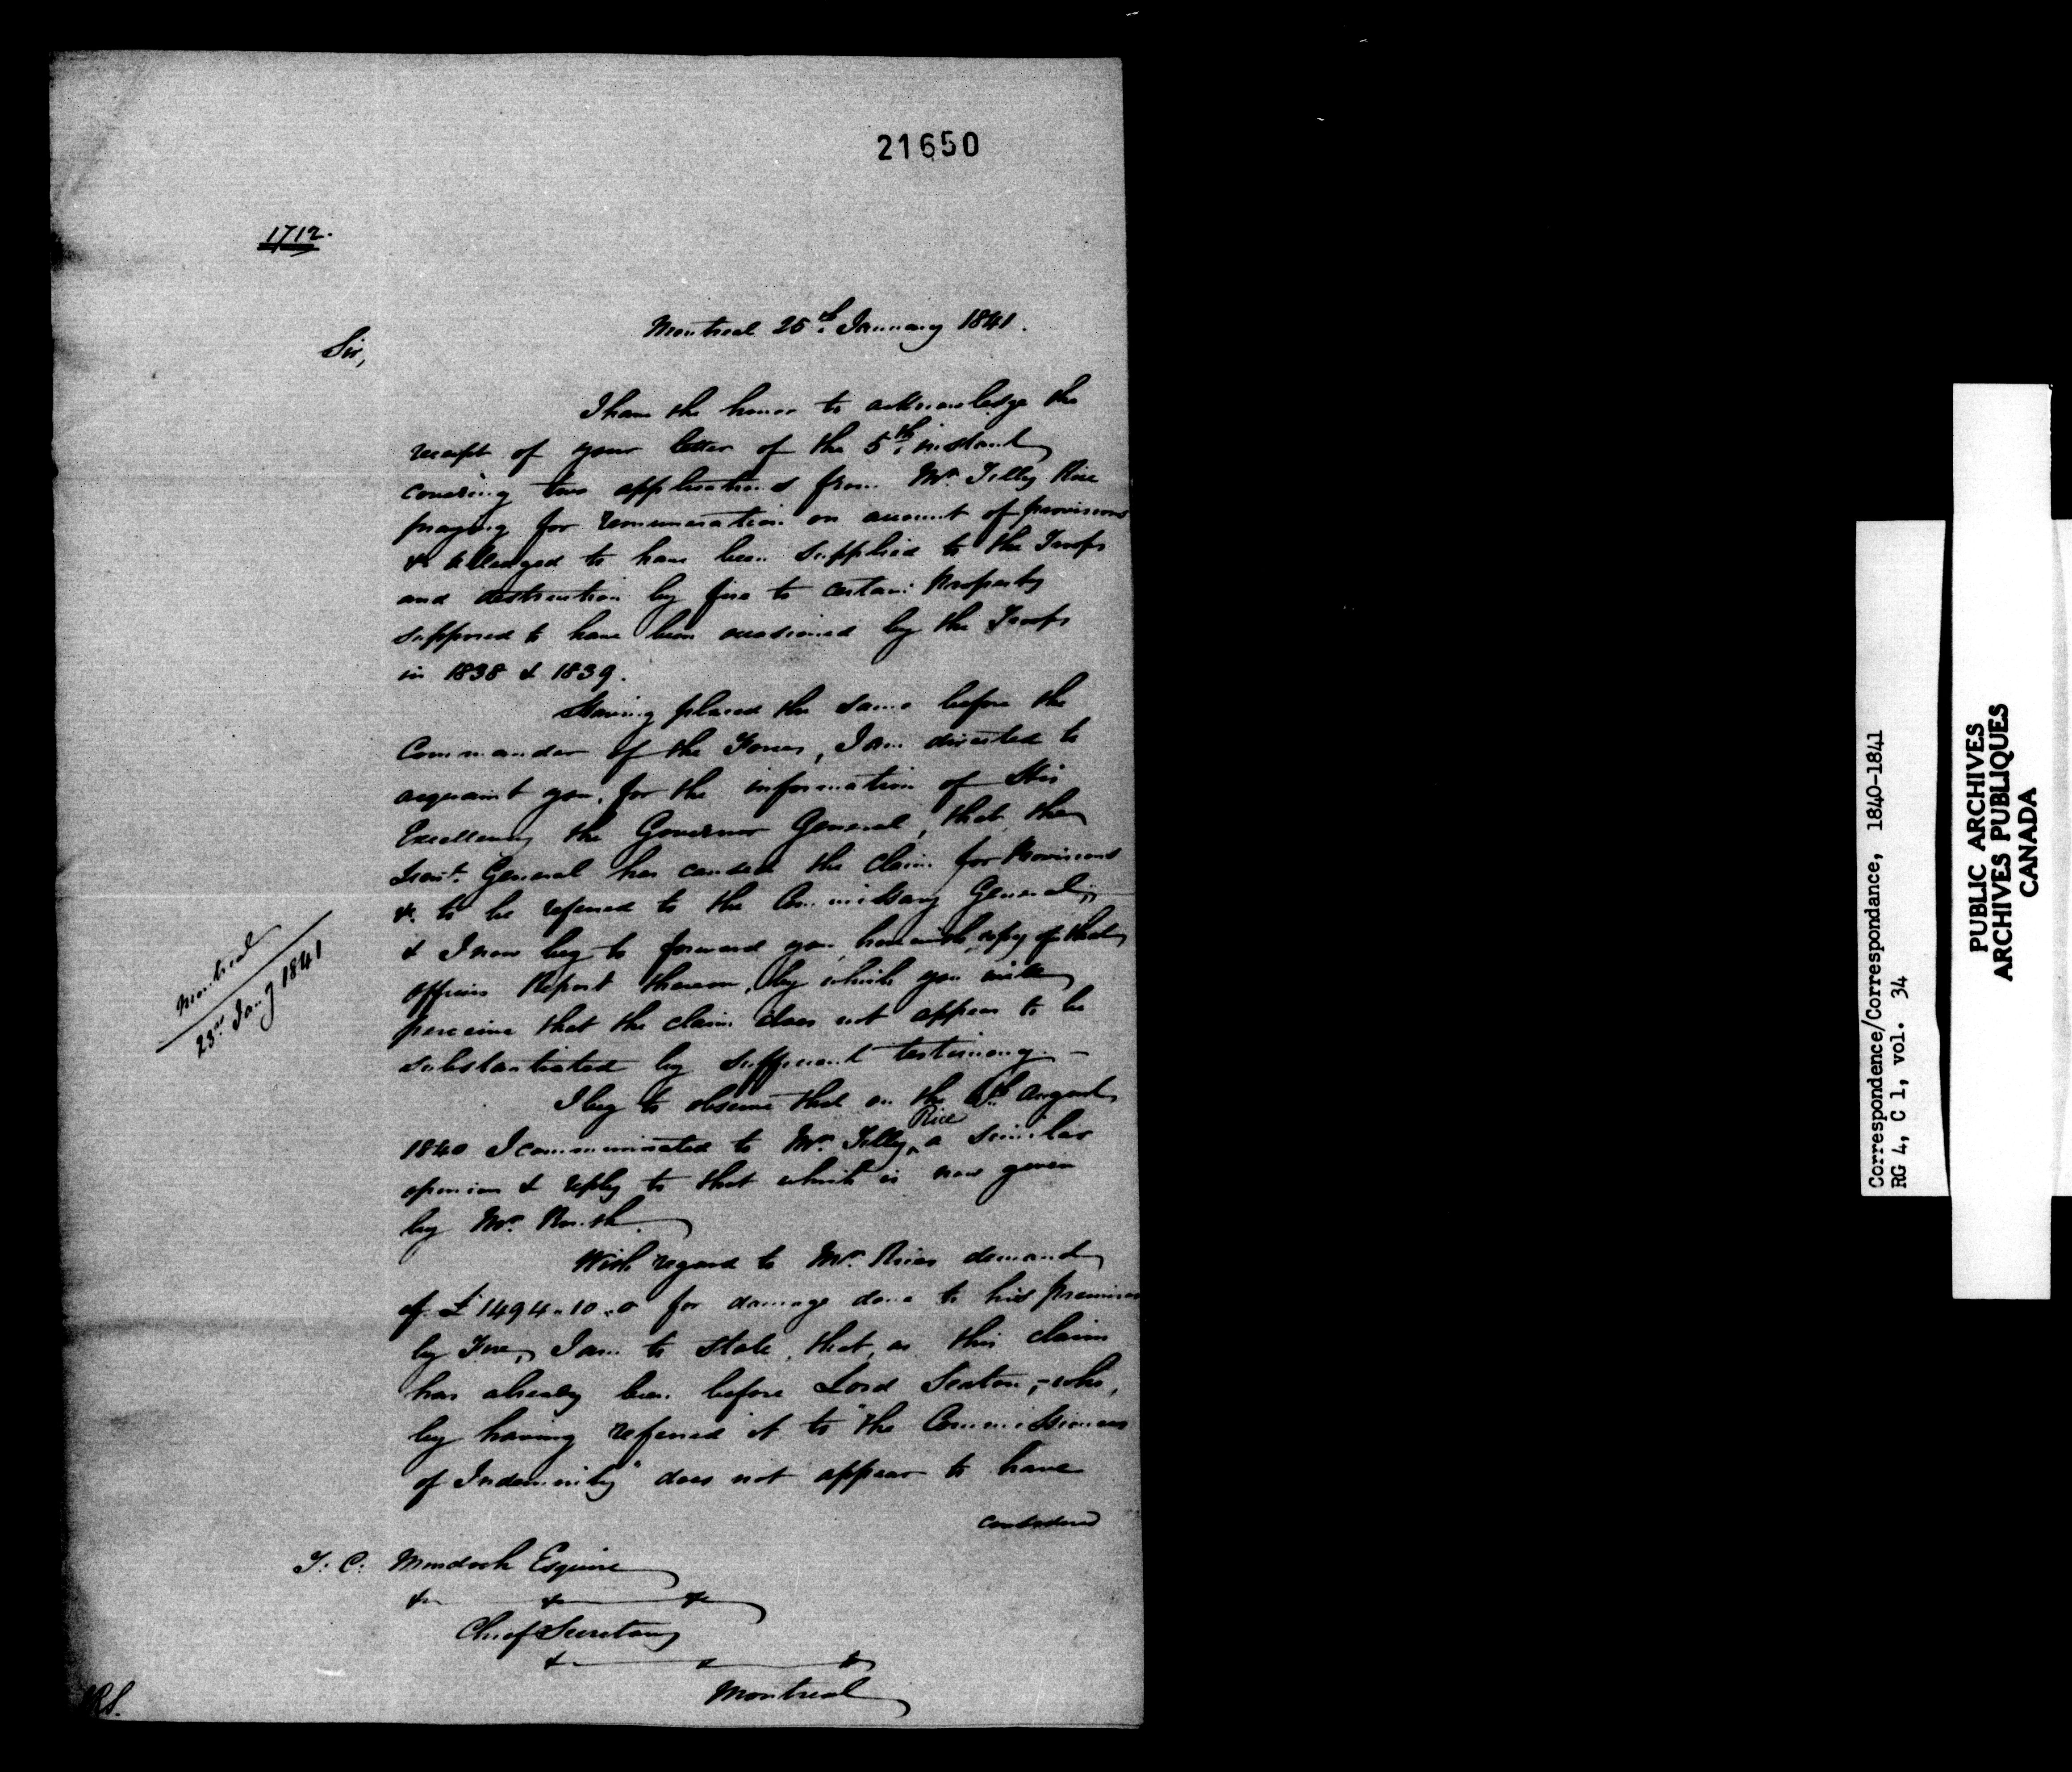 21650
1712.
Montreal 25th January 1841.
Sir,
I have the honor to acknowledge the
receipt of your letter of the 5th instant
covering two applications from Mr. Tilly Rice
praying for remuneration on account of provisions
&c. alledged to have been supplied to the Troops
and destruction by fire to certain Property
supposed to have been occasioned by the Troops
in 1838 & 1839.
Having placed the same before the
Commander of the Forces, I am directed to
acquaint you, for the information of His
Excellency the Governor General, that the
Lieut. General has caused the claim for Provisions
&c. to be referred to the Commissary General,
& I now beg to forward you herewith, copy of that
officers Report thereon, by which you will
perceive that the claim does not appear to be
substantiated by sufficient testimony. -
Montreal
23rd Jany 1841
I beg to observe that on the August
1840 I communicated to Mr. Tilly Rice a similar
opinion & reply to that which is now given
by Mr. Routh.
With regard to Mr. Rices demand
of £1494.10.0 for damage done to his premises
by Fire, I am to state, that, as this claim
has already been before Lord Seaton, - who,
by having referred it to "the Commissioners
of Indemnity" does not appear to have
considered
T. C. Murdoch Esquire
&c &c &c
Chief Secretary
&c &c &c
Montreal
Correspondence/Correspondance, 1840-1841
RG 4, C 1, vol. 34
PUBLIC ARCHIVES
ARCHIVES PUBLIQUES
CANADA